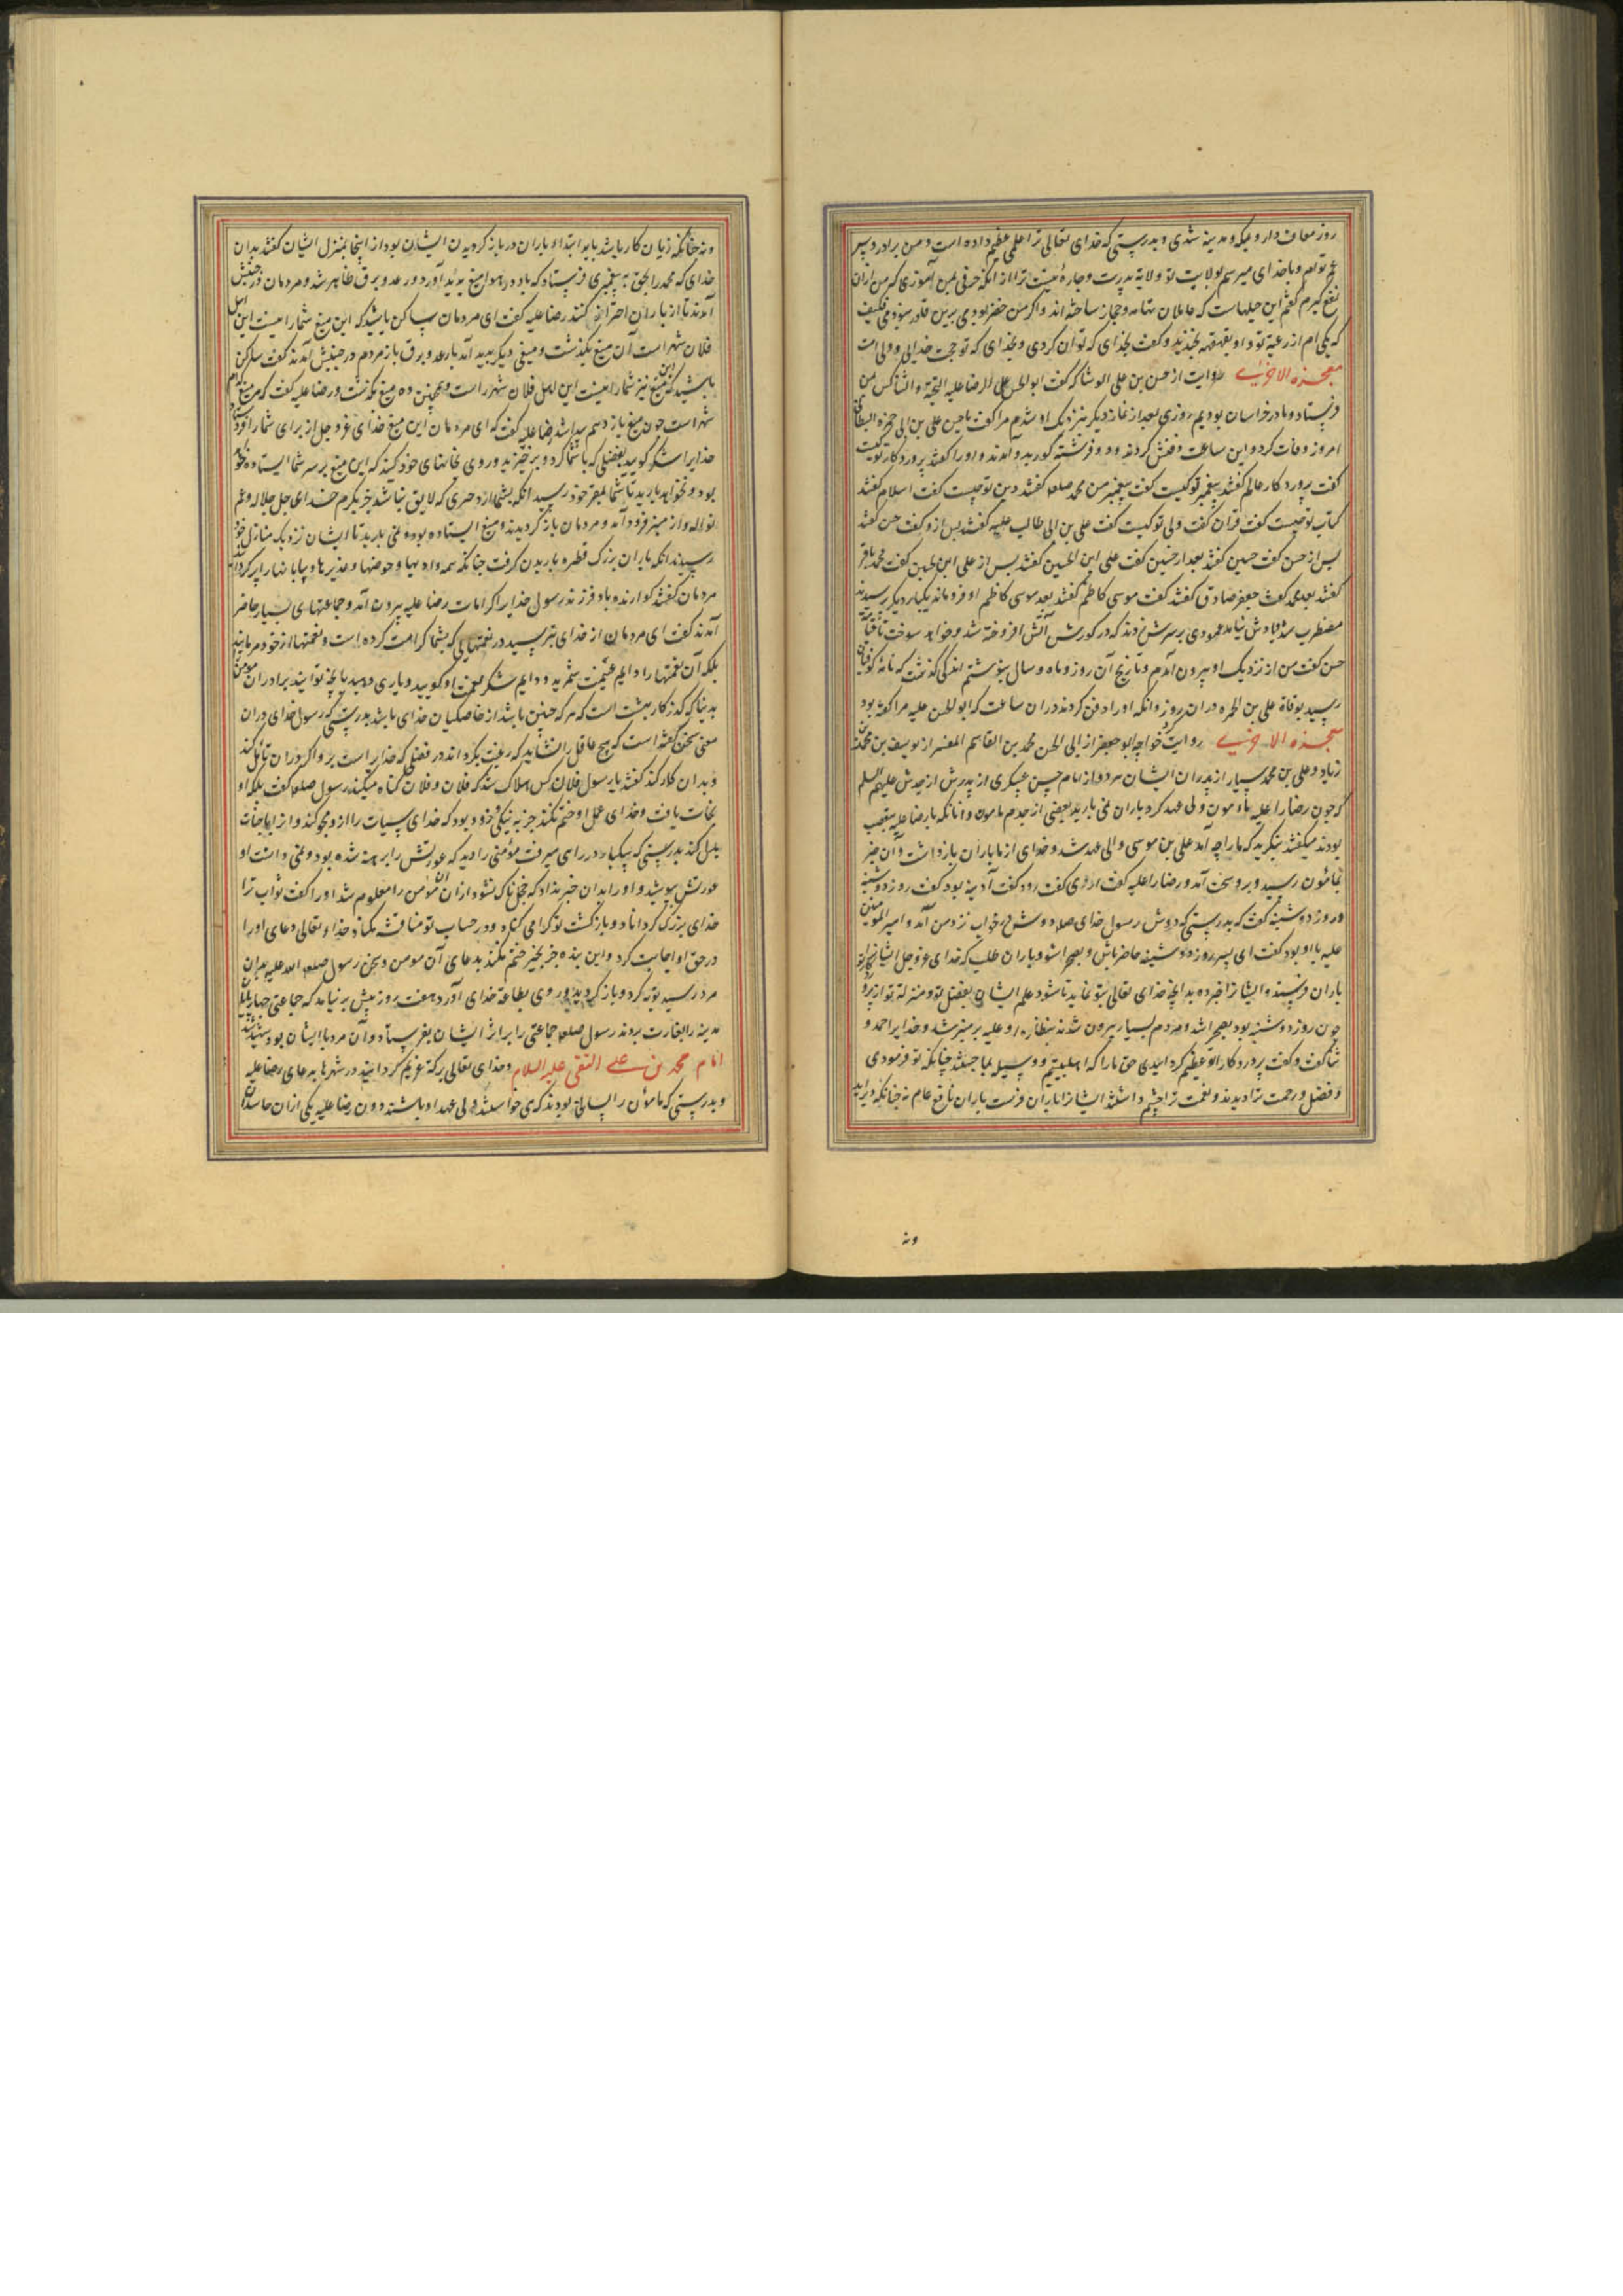 روز معاف دار و بمکه و مدینه شدی و بدرستی که خدای تعالی ترا علمی عظیم داده است و من برادر و پسر
عم توام و با خدای میرسم بولایت تو ولایة پدرت و چاره نیست ترا از انکه حرفی بمن آموزی که من ازان
نفع گیرم گفتم این حیلهاست که عاملان تهامه و حجاز ساخته اند واگر من
که یکی ام از رعیة تو و او بقهقهه بخندید و گفت بخدای که توان کردی و بخدای که تو حجت خدایی و ولی امت
معجزه الاخری روایت از حسن بن علی الوشا که گفت ابو الحسن علی الرضا علیه التحیة والثنا کس بمن
فرستاد و ما در خراسان بودیم روزی بعد از نماز دیگر بنزدیک او شدم مرا گفت یا حسن علی بن ابی حمزه البطائنی
امروز وفات کرد و این ساعت دفنش کردند و دو فرشته گور بدو آمدند و او را گفتند پروردگار تو کیست
گفت پروردگار عالم گفتند پیغمبر تو کیست گفت پیغمبر من محمد صلعم گفتند دین تو چیست گفت اسلام گفتند
کتاب تو چیست گفت قران گفتند ولی تو کیست گفت علی بن ابی طالب علیه گفتند پس ازو گفت حسن گفتند
پس از حسن گفت حسین گفتند بعد از حسین گفت علی ابن الحسین گفتند پس از علی ابن الحسین گفت محمد باقر
گفتند بعد محمد گفت جعفر صادق گفتند گفت موسی کاظم گفتند بعد موسی کاظم او فرو ماند یکبار دیگر پرسیدند
مضطرب شد و یادش نیامد عمودی بر سرش زدند که در گورش آتش افروخته شد و خواهد سوخت تا قیامت
حسن گفت من از نزدیک او بیرون آمدم و تاریخ آن روز و ماه و سال بنوشتم اندکی گذشت که نامه کوفیان
رسید بوفاة علی بن الحمزه دران روز و انکه او را دفن کردند دران ساعت که ابو الحسن علیه مرا گفته بود
معجزه الاخری روایت خواجه ابو جعفر از ابی الحسن محمد بن القاسم المفسر از یوسف بن محمد بن
زیاد و علی بن محمد سیار از پدران ایشان هر دو از امام حسن عسکری از پدرش از جدش علیهم السلم
که چون رضا را علیه مامون ولی عهد کرد باران نمی بارید بعضی از خدم مامون و انانکه با رضا علیه بتعصب
بودند میگفتند بنگرید که ما را چه آمد علی بن موسی ولی عهد شد و خدای از ما باران بازداشت و آن خبر
بمامون رسید و برو سخت آمد و رضا را علیه گفت گفت آدینه بود گفت روز دوشنبه
و روز دوشنبه گفت که بدرستی که دوش رسول خدای صلعم دوش در خواب نزد من آمد و امیر المومنین
علیه با او بود گفت ای پسر روز دوشنبه حاضر باش و بصحرا شو و باران طلب که خدای عز و جل ایشانرا
باران فرستد و ایشانرا خبر ده بدانچه خدای تعالی بتو نماید تا شود علم ایشان بفضل تو و منزلة تو از پروردگار تو
چون روز دوشنبه بود بصحرا شد و مردم بسیار بیرون شدند بنظاره او علیه بر منبر شد و خدایرا حمد و
ثنا گفت و گفت پروردگارا تو عظیم گردانیدی حق ما را که اهل بیتیم و وسیله بما جستند چنانکه تو فرمودی
و فضل و رحمت ترا دیدند و نعمت ترا چشم داشتند ایشانرا باران فرست باران نافع عام نه چنانکه دیر اید
ونه
ونه چنانکه زیان کار باشد باید ابتداء باران در بازگردیدن ایشان بود از اینجا بمنزل ایشان گفتند بدان
خدای که محمد را بحق به پیغمبری فرستاد که باد در هوا میغ پدید آورد و رعد و برق ظاهر شد و مردمان در جنبش
آمدند تا از باران احتراز کنند رضا علیه گفت ای مردمان ساکن باشید که این میغ شما را نیست این اهل
فلان شهر است آن میغ بگذشت و میغی دیگر پدید آمد با رعد و برق باز مردم در جنبش آمدند گفت ساکن
باشید که این میغ نیز شما را نیست این اهل فلان شهر راست و همچنین ده میغ بگذشت و رضا علیه گفت که میغ فلان
شهر است چون میغ یازدهم پیدا شد رضا علیه گفت که ای مردمان این میغ خدای عز و جل از برای شما را فرستاد
خدایرا شکر گویید بفضلی که با شما کرد و برخیزید و روی بخانهای خود کنید که این میغ بر سر شما ایستاده خواهد
بود و نخواهد بارید تا شما بمقر خود رسید انکه بشما از خیری که لایق نباشد جز بکرم خدای جل جلاله و عم
نواله و از منبر فرود آمد و مردمان باز گردیدند و میغ ایستاده بود و نمی بارید تا ایشان نزدیک منازل خود
رسیدند انکه باران بزرگ قطره باریدن گرفت چنانکه همه وادیها و حوضها و غدیرها و بیابانها را پر گردانید
مردمان گفتند گوارنده باد فرزند رسول خدایرا کرامات رضا علیه بیرون آمد و جماعتهای بسیار حاضر
آمدند گفت ای مردمان از خدای بترسید در نعمتهایی که بشما کرامت کرده است و نعمتها از خود مرمانید
بلکه آن نعمتها را دایم غنیمت شمرید و دایم شکر نعمت او گویید و یاری دهید بآنچه توانید برادران مومن
بدنیا که گذرگاه بهشت است که هر که چنین باشد از خاصگیان خدای باشد بدرستی که رسول خدای دران
معنی سخن گفته است که هیچ عاقل را نشاید که رغبت بگرداند در فضلی که خدایرا ست برو اگر دران تامل کند
و بدان کار کند گفتند یا رسول فلان کس هلاک شد که فلان و فلان گناه میکند رسول صلعم گفت بلکه او
نجات یافت و خدای عمل او ختم نکند جز به نیکی و زود بود که خدای سیات را ازو محو کند و از
بدل کند بدرستی که یکبار در راهی میرفت مؤمنی را دید که عورتش را برهنه شده بود و نمی دانست او
عورتش بپوشید و او را بدان خبر نداد که خجل ناک نشود ازان آن مؤمن را معلوم شد او را گفت ثواب ترا
خدای بزرگ گرداناد و بازگشت تو گرامی کناد و در حساب تو مناقشه مکناد خدا و تعالی دعای او را
در حق او اجابت کرد و این بنده جز بخیر ختم نکند بدعای آن مومن و سخن رسول صلعم الله علیه بدان
مرد رسید توبه کرد و باز گردید و روی بطاعة خدای آورد هفت روز بیش برنیامد که جماعتی
مدینه را بغارت بردند رسول صلعم جماعتی را بر اثر ایشان بفرستاد و آن مرد با ایشان بود شهید شد
امام محمد بن علی التقی علیه السلام و خدای تعالی برکة عظیم گردانید در شهرها بدعای رضا علیه
و بدرستی که مامون را کسانی بودند که می خواستند ولی عهد او باشند دون رضا علیه یکی ازان حاسدان